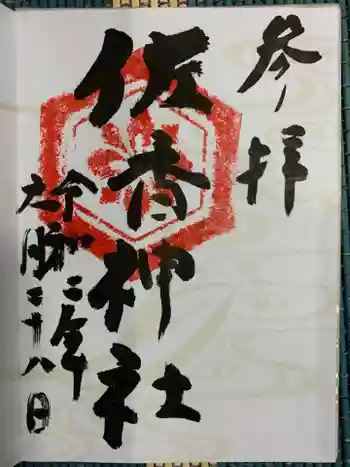 参拝
佐香神社
令和二年
六月二十八日